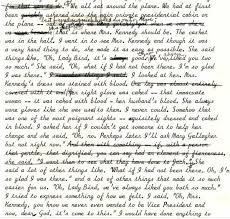 for that
We all got around the plane. We had at first
been ushered into the main private presidential cabin on
the plane -
is where Mrs. Kennedy should be. The casket
was in the hall. I went in to see Mrs. Kennedy and though it was
a very hard thing to do, she made it as easy as possible. She said
things like, "Oh, Lady Bird, it's good, we've liked you two
so much." She said, "Oh, what if I had not been there. I'm so glad
I was there." I looked at her. Mrs.
Kennedy's dress was stained with blood.
her right glove was caked - that immaculate
woman - it was caked with blood - her husband's blood. She always
wore gloves like she was used to them. I never could. Somehow that
was one of the most poignant sights - exquisitely dressed and caked
in blood. I asked her if I couldn't get someone in to help her
change and she said, "Oh, no. Perhaps later I'll ask Mary Gallagher
but not right now." And then with something - if, with a person
that gentle, that dignified, you can say had an element of fierceness,
she said, "I want them to see what they have done to Jack." She
said a lot of other things like, "What if I had not been there. Oh, I'm
so glad I was there," and a lot of other things that made it so much
easier for us. "Oh, Lady Bird, we've always liked you both so much."
I tried to express something of how we felt. I said, "Oh, Mrs.
Kennedy, you know we never even wanted to be Vice President and
now, dear God, it's come to this." I would have done anything to